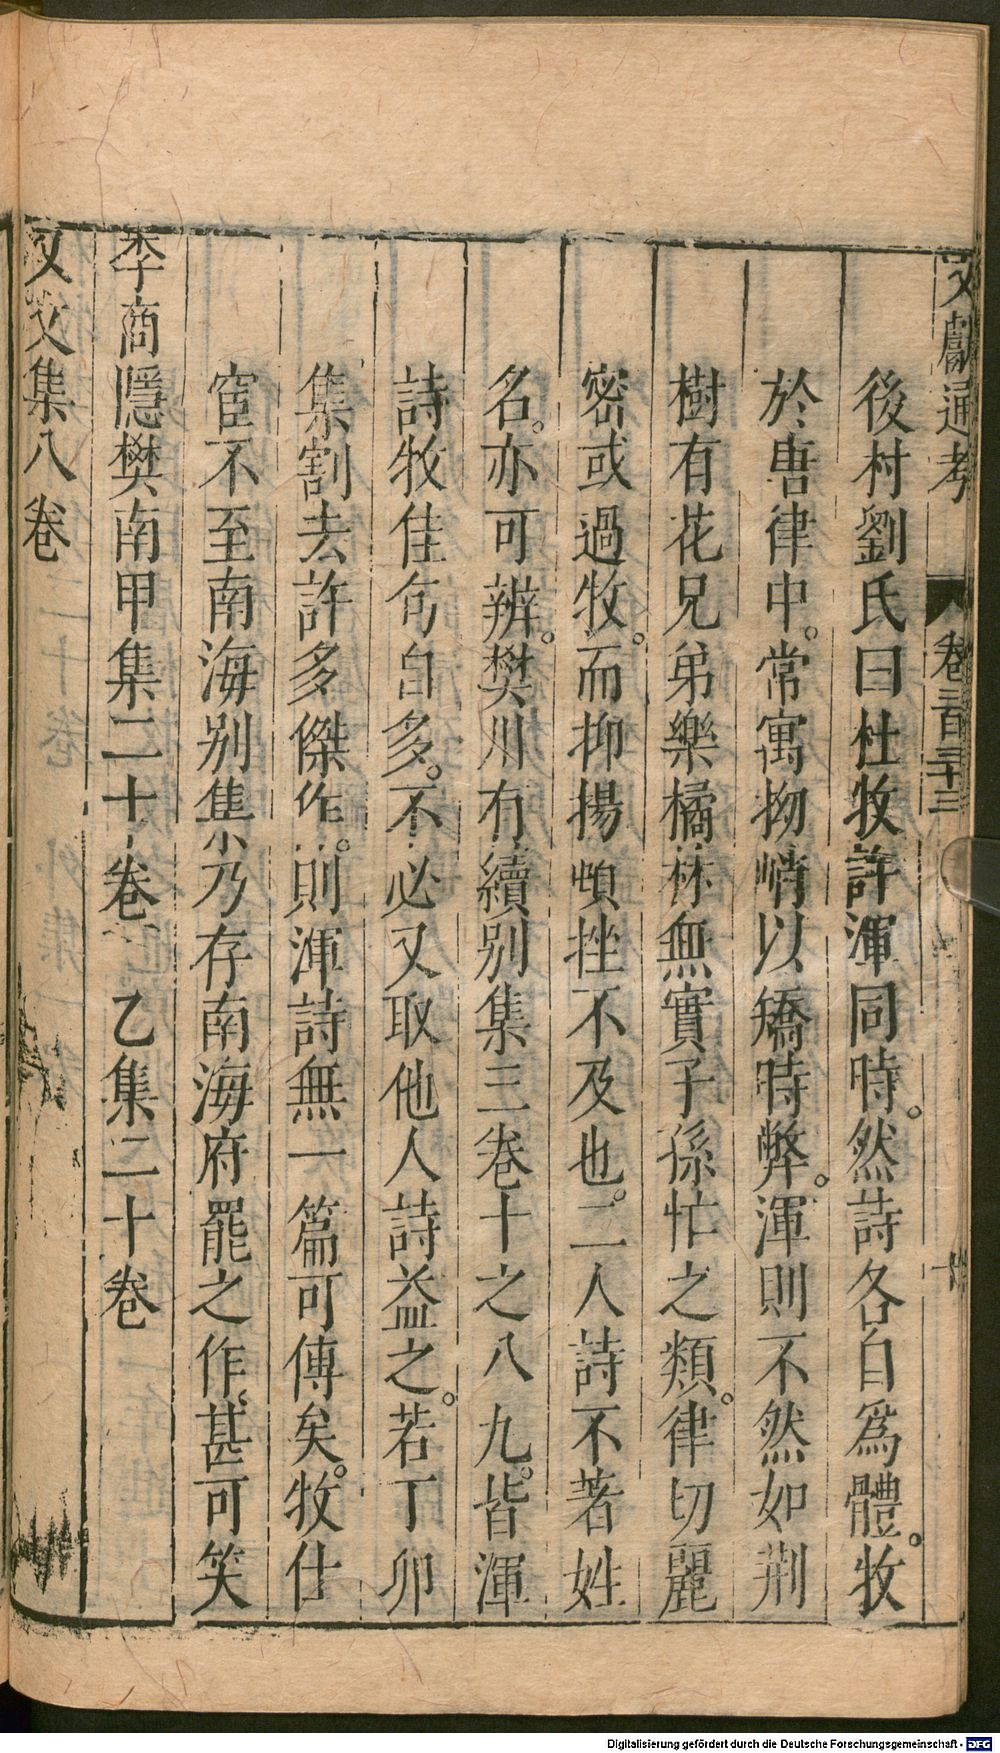 文獻通考 卷二百三十三 十
後村劉氏曰杜牧許渾同時。然詩各自爲體。牧
於唐律中。常寓拗峭以矯時弊。渾則不然如荆
樹有花兄弟樂橘林無實子孫忙之類。律切麗
密或過牧。而抑揚頓挫不及也。二人詩不著姓
名。亦可辨。樊川有續別集三卷十之八九。皆渾
詩牧佳句自多。不必又取他人詩益之。若丁卯
集割去許多傑作。則渾詩無一篇可傳矣。牧仕
宦不至南海別集乃存南海府罷之作。甚可笑
李商隱樊南甲集二十卷 乙集二十卷
又文集八卷
Digitalisierung gefördert durch die Deutsche Forschungsgemeinschaft - DFG